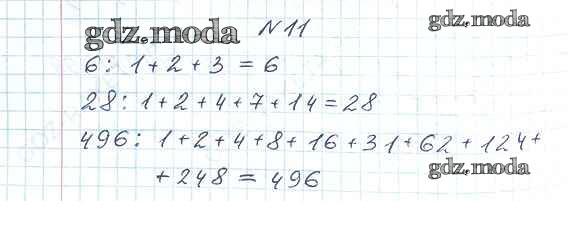 gdz.moda № 11 gdz.moda
6: 1 + 2 + 3 = 6
28: 1 + 2 + 4 + 7 + 14 = 28
496: 1 + 2 + 4 + 8 + 16 + 31 + 62 + 124 +
+ 248 = 496 gdz.moda